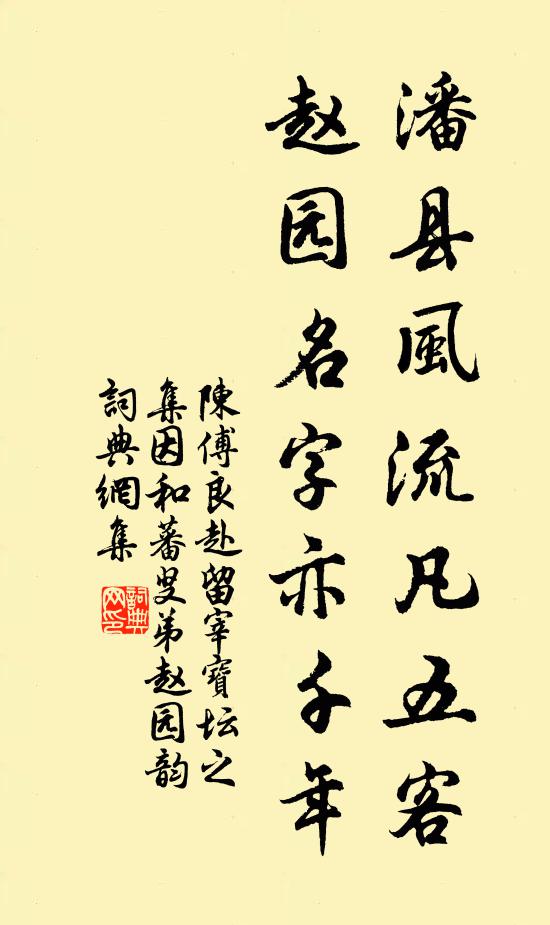 潘县風流凡五客
赵园名字亦千年
陳傅良赴留宰寶坛之
集因和蕃叟弟赵园韵
詞典網集
詞典网印